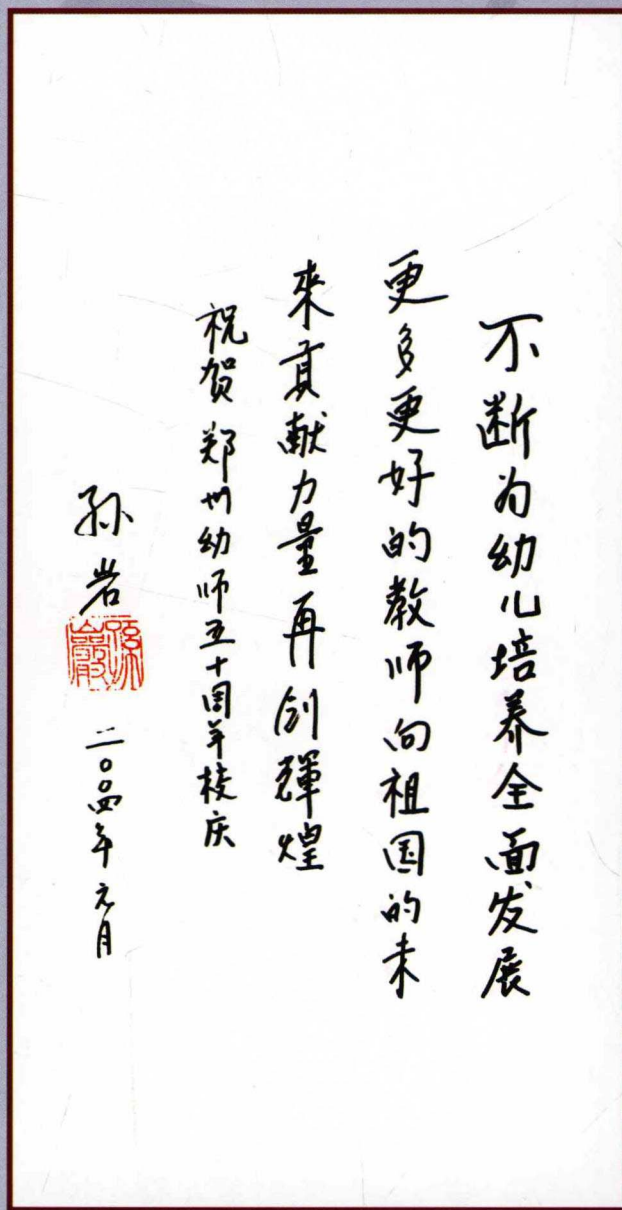 不断为幼儿培养全面发展
更多更好的教师向祖国的未
來貢献力量再创辉煌
祝贺郑州幼师五十周年校庆
孙岩
孫巖
二〇〇四年元月